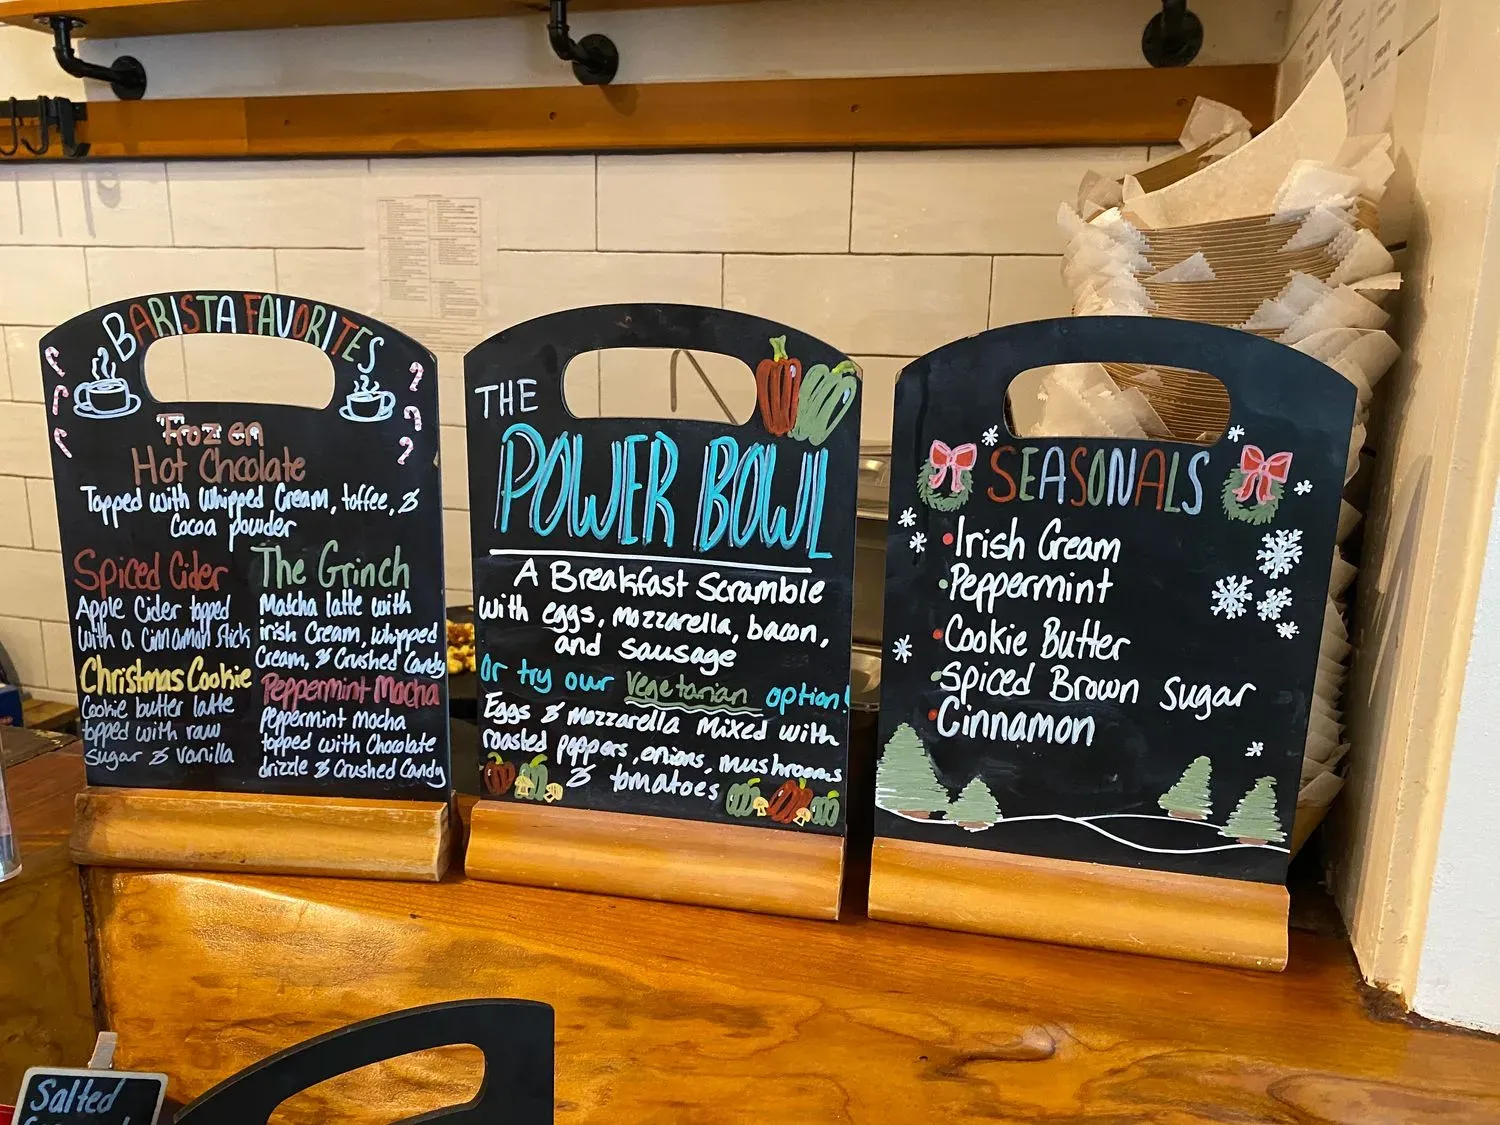 BARISTA FAVORITES
Frozen
Hot Chocolate
Topped with whipped Cream, toffee, &
Cocoa powder
Spiced Cider
Apple Cider topped
with a Cinnamon stick
Christmas Cookie
Cookie butter latte
topped with raw
Sugar & vanilla
The Grinch
Matcha latte with
irish Cream, whipped
Cream, & Crushed Candy
Peppermint Mocha
peppermint mocha
topped with Chocolate
drizzle & Crushed Candy
THE
POWER BOWL
A Breakfast Scramble
with eggs, mozzarella, bacon,
and sausage
Or try our Vegetarian option!
Eggs & mozzarella mixed with
roasted peppers, onions, mushrooms
& tomatoes
SEASONALS
•Irish Cream
•Peppermint
•Cookie Butter
•Spiced Brown Sugar
•Cinnamon
Salted